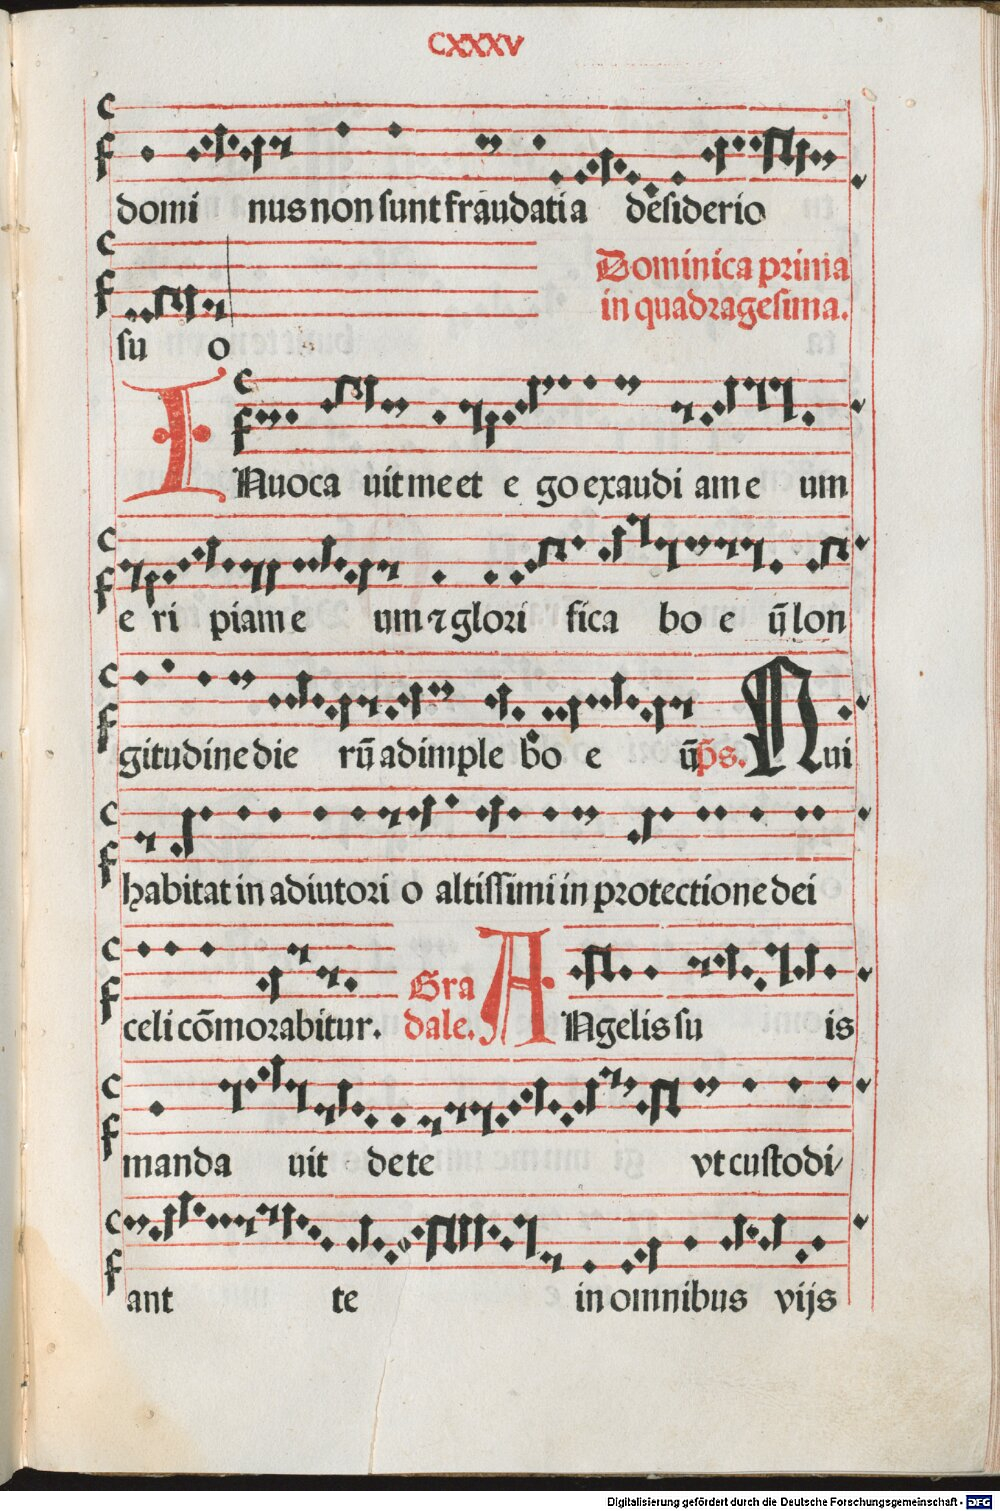 CXXXV
domi nus non sunt fraudati a desiderio
su o
Dominica prima
in quadragesima.
INuoca uit me et e go exaudi am e um
e ri piam e um ⁊ glori fica bo e ū lon
gitudine die rū adimple bo e ū p̄s. Qui
habitat in adiutori o altissimi in protectione dei
celi cōmorabitur. Gra
dale. ANgelis su is
manda uit de te vt custodi/
ant te in omnibus vijs
Digitalisierung gefördert durch die Deutsche Forschungsgemeinschaft - DFG